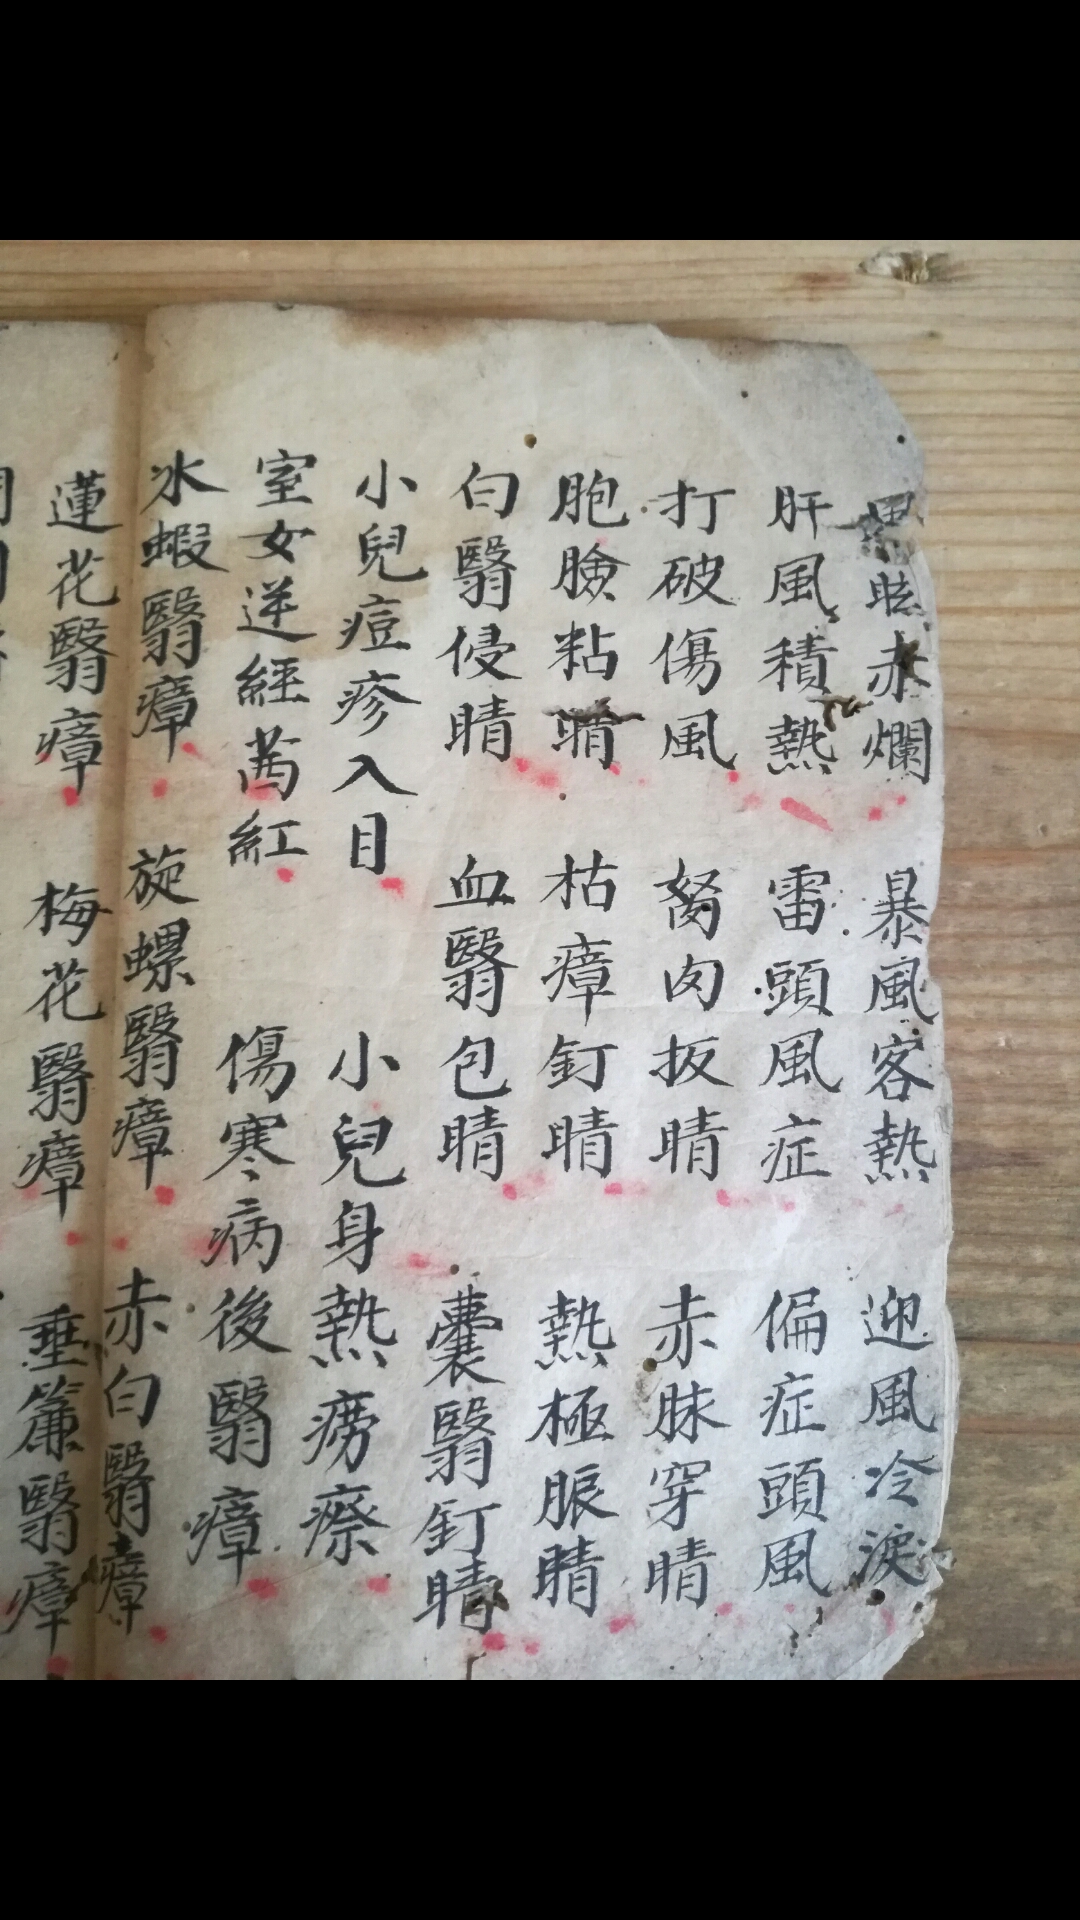 眩赤爛 暴風客熱 迎風冷淚
肝風積熱 雷頭風症 偏症頭風
打破傷風 胬肉扳睛 赤脉穿睛
胞臉粘睛 枯瘴釘睛 熱極脹睛
白翳侵睛 血翳包睛 囊翳釘睛
小兒痘疹入目 小兒身熱痨瘵
室女逆經茜紅 傷寒病後翳瘴
冰蝦翳瘴 旋螺翳瘴 赤白翳瘴
蓮花翳瘴 梅花翳瘴 垂簾翳瘴